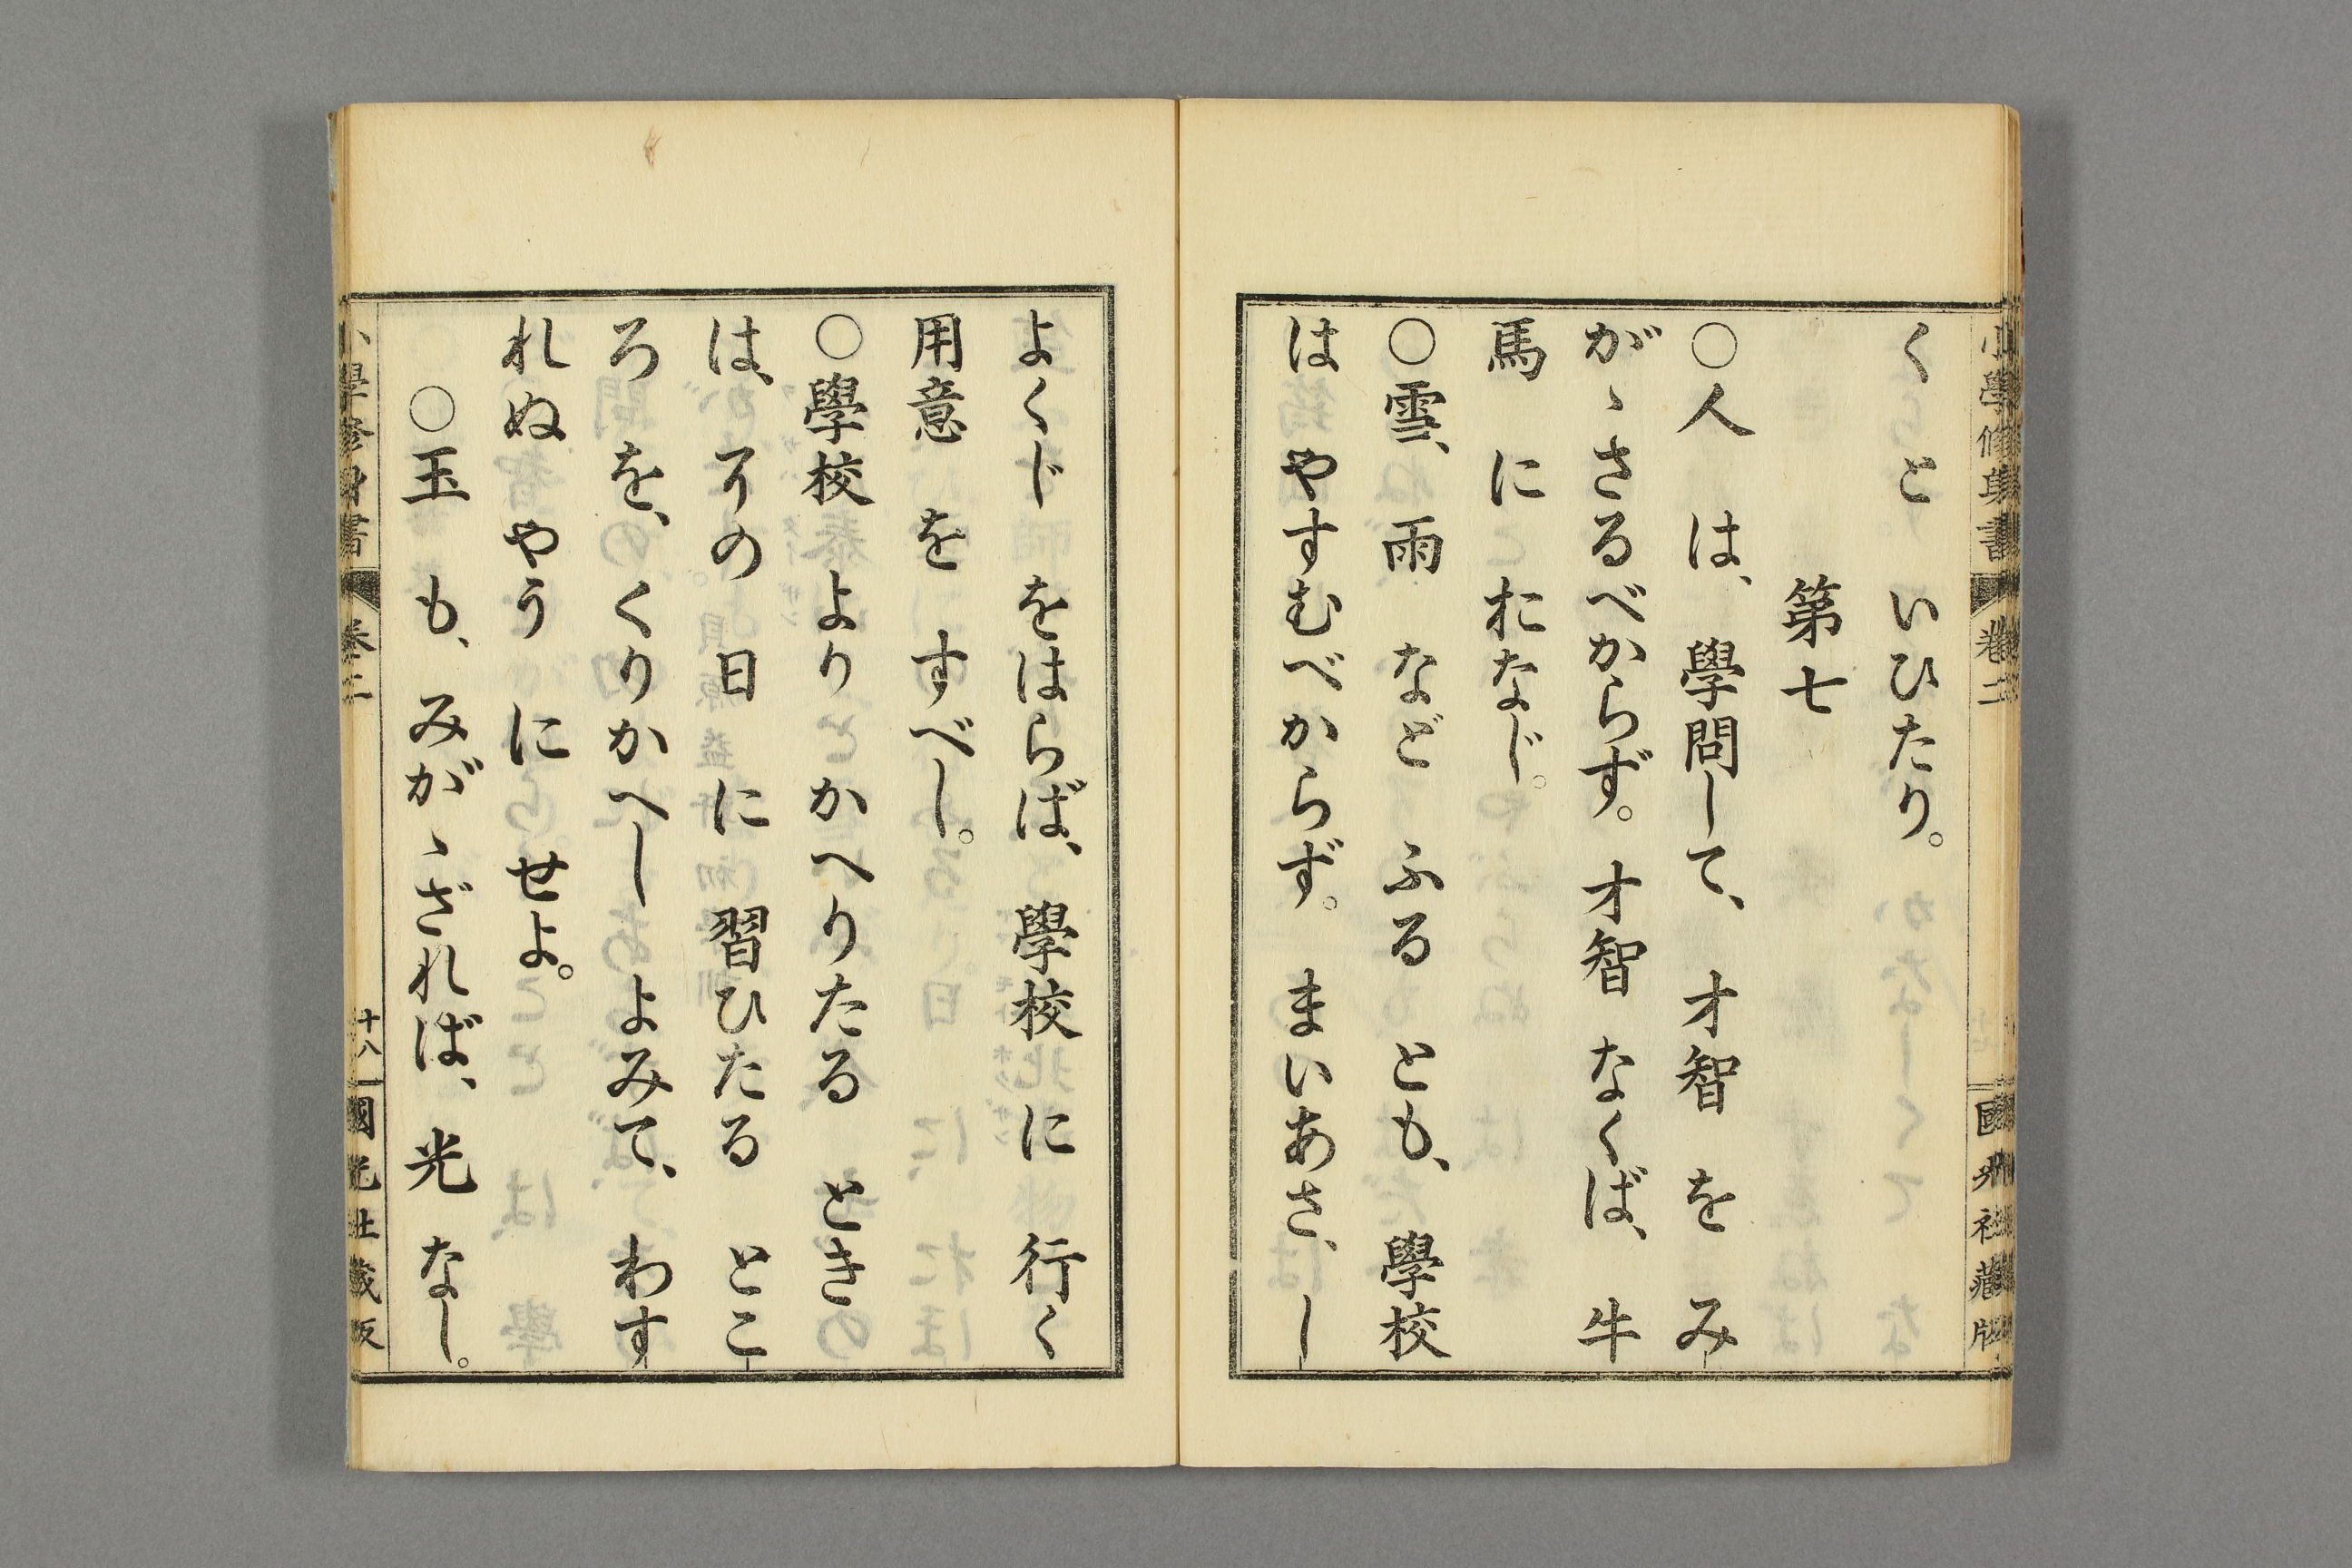 小學修身書 卷二 國光社藏版
く と いひたり。
第七
○人 は、 學問して、 才智 を み
がゝさるべからず。 才智 なくば、 牛
馬 に おなじ。
○雪、 雨 など ふる とも、 學校
は やすむべからず。 まいあさ、 し
よくじ をはらば、 學校 に 行く
用意 を すべし。
○學校 より かへりたる とき
は、 その 日 に 習ひたる とこ
ろ を、 くりかへし よみて、 わす
れぬ やう に せよ。
○玉 も、 みがゝざれば、 光 なし。
小學修身書 卷二 十八 國光社藏版